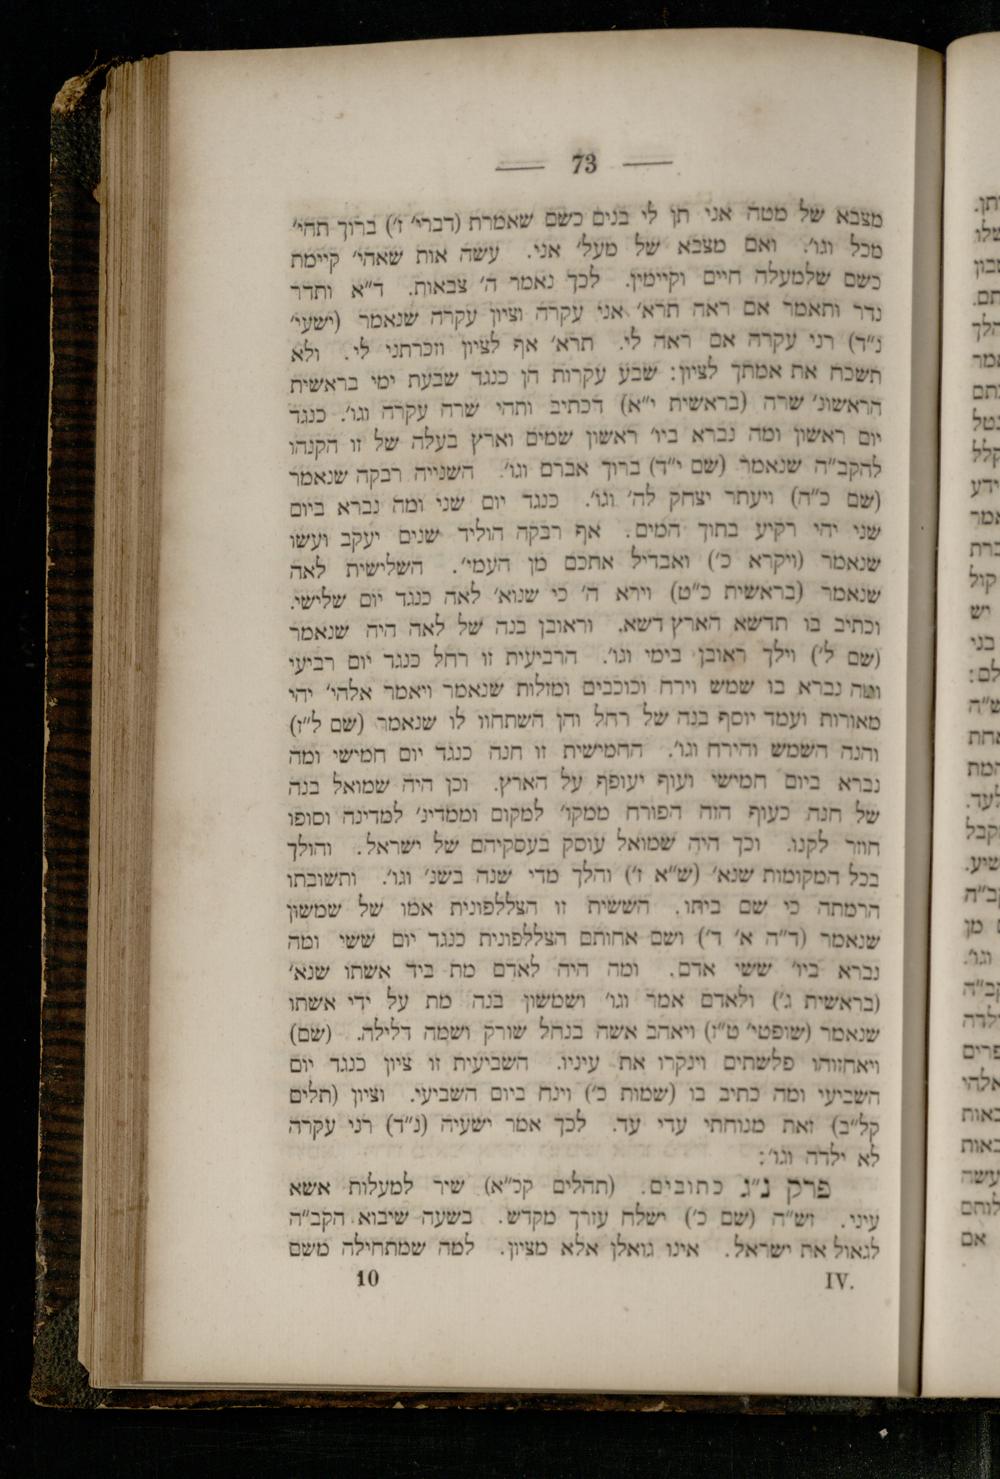 — 73 —
מצבא של מטה אני תן לי בנים כשם שאמרת (דברי׳ ז׳) ברוך תהי׳
מכל וגו׳. ואם מצבא של מעל׳ אני. עשה אות שאהי׳ קיימת
כשם שלמעלה חיים וקיימין. לכך נאמר ה׳ צבאות. ד״א ותדר
נדר ותאמר אם ראה תרא׳ אני עקרה וציון עקרה שנאמר (ישעי׳
נ״ד) רני עקרה אם ראה לי. תרא׳ אף לציון וזכרתני לי. ולא
תשכח את אמתך לציון: שבע עקרות הן כנגד שבעת ימי בראשית
הראשונ׳ שרה (בראשית י״א) דכתיב ותהי שרה עקרה וגו׳. כנגד
יום ראשון ומה נברא ביו׳ ראשון שמים וארץ בעלה של זו הקנהו
להקב״ה שנאמר (שם י״ד) ברוך אברם וגו׳. השנייה רבקה שנאמר
(שם כ״ה) ויעתר יצחק לה׳ וגו׳. כנגד יום שני ומה נברא ביום
שני יהי רקיע בתוך המים. אף רבקה הוליד שנים יעקב ועשו
שנאמר (ויקרא כ׳) ואבדיל אתכם מן העמי׳. השלישית לאה
שנאמר (בראשית כ״ט) וירא ה׳ כי שנוא׳ לאה כנגד יום שלישי.
וכתיב בו תדשא הארץ דשא. וראובן בנה של לאה היה שנאמר
(שם ל׳) וילך ראובן בימי וגו׳. הרביעית זו רחל כנגד יום רביעי
ומה נברא בו שמש וירח וכוכבים ומזלות שנאמר ויאמר אלהי׳ יהי
מאורות ועמד יוסף בנה של רחל והן השתחוו לו שנאמר (שם ל״ז)
והנה השמש והירח וגו׳. החמישית זו חנה כנגד יום חמישי ומה
נברא ביום חמישי ועוף יעופף על הארץ. וכן היה שמואל בנה
של חנה כעוף הזה הפורח ממקו׳ למקום וממדינ׳ למדינה וסופו
חוזר לקנו. וכך היה שמואל עוסק בעסקיהם של ישראל. והולך
בכל המקומות שנא׳ (ש״א ז׳) והלך מדי שנה בשנ׳ וגו׳. ותשובתו
הרמתה כי שם ביתו. הששית זו הצללפונית אמו של שמשון
שנאמר (ד״ה א׳ ד׳) ושם אחותם הצללפונית כנגד יום ששי ומה
נברא ביו׳ ששי אדם. ומה היה לאדם מת ביד אשתו שנא׳
(בראשית ג׳) ולאדם אמר וגו׳ ושמשון בנה מת על ידי אשתו
שנאמר (שופטי׳ ט״ז) ויאהב אשה בנחל שורק ושמה דלילה. (שם)
ויאחזוהו פלשתים וינקרו את עיניו. השביעית זו ציון כנגד יום
השביעי ומה כתיב בו (שמות כ׳) וינח ביום השביעי. וציון (תלים
קל״ב) זאת מנוחתי עדי עד. לכך אמר ישעיה (נ״ד) רני עקרה
לא ילדה וגו׳:
פרק נ״ג כתובים. (תהלים קכ״א) שיר למעלות אשא
עיני. זש״ה (שם כ׳) ישלח עזרך מקדש. בשעה שיבוא הקב״ה
לגאול את ישראל. אינו גואלן אלא מציון. למה שמתחילה משם
IV. 10